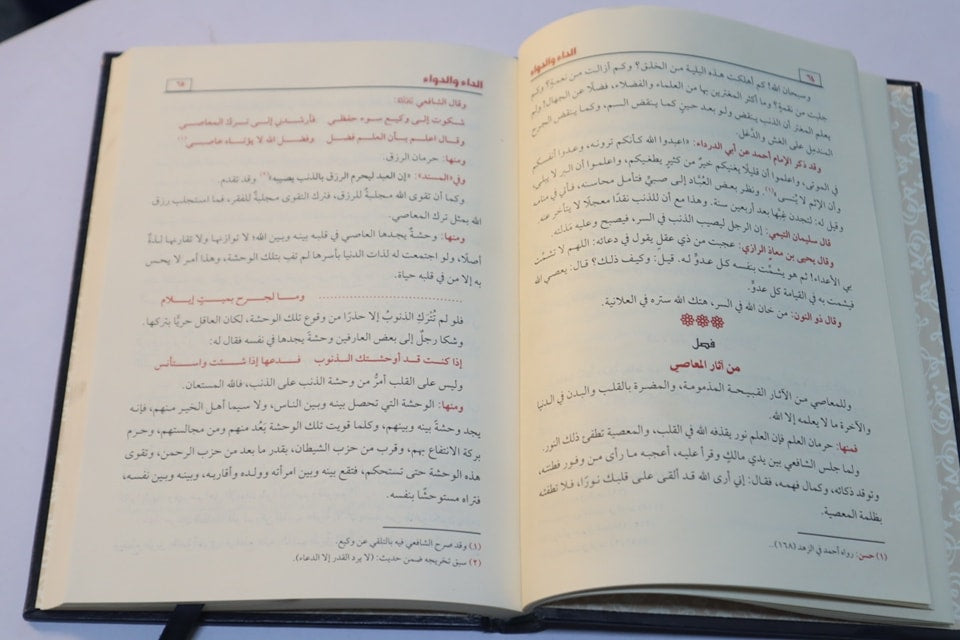 ٦٤
الداء والدواء
وسبحان الله! كم أهلكت هذه البلية من الخلق؟ وكم أزالت من نعمةٍ؟ وكم
جلبت من نقمةٍ؟ وما أكثر المغترين بها من العلماء والفضلاء، فضلًا عن الجهال! ولم
يعلم المغتر أن الذنب ينقض ولو بعد حينٍ كما ينقض السم، وكما ينقض الجرح
المندمل على الغش والدَّغل.
وقد ذكر الإمام أحمد عن أبي الدرداء: «اعبدوا الله كأنكم ترونه، وعدوا أنفسكم
في الموتى، واعلموا أن قليلًا يغنيكم خيرٌ من كثيرٍ يطغيكم، واعلموا أن البر لا يبلى،
وأن الإثم لا يُنسى»(١). ونظر بعض العُبَّاد إلى صبيٍّ فتأمل محاسنه، فأتي في منامه
وقيل له: لتجدن غِبَّها بعد أربعين سنة. وهذا مع أن للذنب نقدًا معجلًا لا يتأخر عنه
قال سليمان التيمي: إن الرجل ليصيب الذنب في السر، فيصبح وعليه مذلته.
وقال يحيى بن معاذٍ الرازي: عجبت من ذي عقل يقول في دعائه: اللهم لا تشمِّت
بي الأعداء! ثم هو يشمِّت بنفسه كل عدوٍّ له. قيل: وكيف ذلك؟ قال: يعصي الله
فيشمت به في القيامة كل عدوٍّ.
وقال ذو النون: من خان الله في السر، هتك الله ستره في العلانية.
فصل
من آثار المعاصي
وللمعاصي من الآثار القبيحة المذمومة، والمضرة بالقلب والبدن في الدنيا
والآخرة ما لا يعلمه إلا الله.
فمنها: حرمان العلم فإن العلم نور يقذفه الله في القلب، والمعصية تطفئ ذلك النور.
ولما جلس الشافعي بين يدي مالكٍ وقرأ عليه، أعجبه ما رأى من وفور فطنته،
وتوقد ذكائه، وكمال فهمه، فقال: إني أرى الله قد ألقى على قلبك نورًا، فلا تطفئه
بظلمة المعصية.
(١) حسن: رواه أحمد في الزهد (١٦٨).
الداء والدواء
٦٥
وقال الشافعي رحمه الله:
شكوت إلى وكيع سوء حفظي فأرشدني إلى ترك المعاصي
وقال اعلم بأن العلم فضل وفضل الله لا يؤتاه عاصي(١)
ومنها: حرمان الرزق:
وفي «المسند»: «إن العبد ليحرم الرزق بالذنب يصيبه»(٢) وقد تقدم.
وكما أن تقوى الله مجلبةٌ للرزق، فترك التقوى مجلبةٌ للفقر، فما استجلب رزق
الله بمثل ترك المعاصي.
ومنها: وحشةٌ يجدها العاصي في قلبه بينه وبين الله؛ لا توازنها ولا تقارنها لذةٌ
أصلًا، ولو اجتمعت له لذات الدنيا بأسرها لم تف بتلك الوحشة، وهذا أمر لا يحس
به إلا من في قلبه حياة.
................................ وما لجرح بميت إيلام
فلو لم تُتْرَكِ الذنوبُ إلا حذرًا من وقوع تلك الوحشة، لكان العاقل حريًّا بتركها.
وشكا رجلٌ إلى بعض العارفين وحشةً يجدها في نفسه فقال له:
إذا كنت قد أوحشتك الذنوب فدعها إذا شئت واستأنس
وليس على القلب أمرُّ من وحشة الذنب على الذنب، فالله المستعان.
ومنها: الوحشة التي تحصل بينه وبين الناس، ولا سيما أهل الخير منهم، فإنه
يجد وحشةً بينه وبينهم، وكلما قويت تلك الوحشة بَعُد منهم ومن مجالستهم، وحرم
بركة الانتفاع بهم، وقرب من حزب الشيطان، بقدر ما بعد من حزب الرحمن، وتقوى
هذه الوحشة حتى تستحكم، فتقع بينه وبين امرأته وولده وأقاربه، وبينه وبين نفسه،
فتراه مستوحشًا بنفسه.
(١) وقد صرح الشافعي فيه بالتلقي عن وكيع.
(٢) سبق تخريجه ضمن حديث: (لا يرد القدر إلا الدعاء).